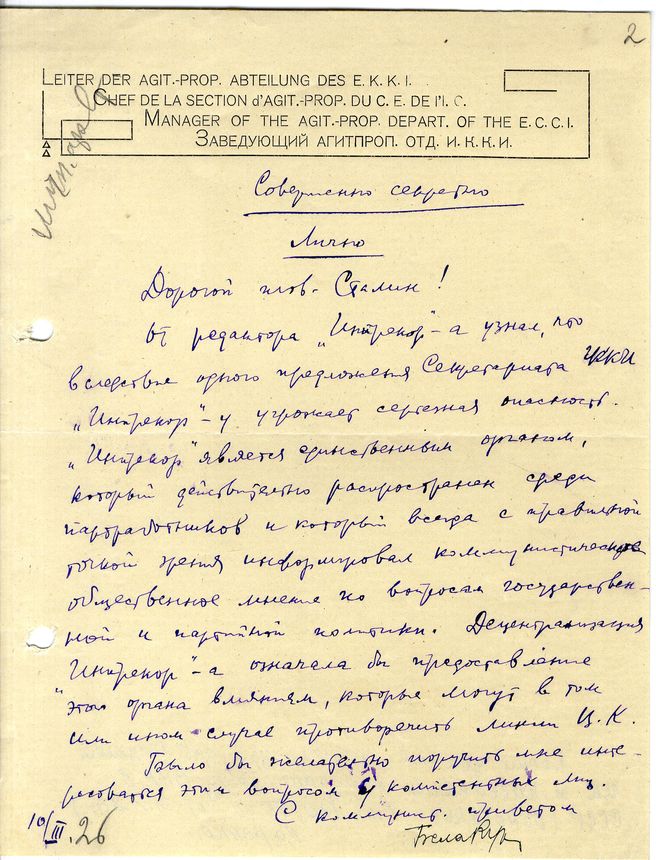 2
LEITER DER AGIT.-PROP. ABTEILUNG DES E. K. K. I.
CHEF DE LA SECTION d'AGIT.-PROP. DU C. E. DE l'I. C.
MANAGER OF THE AGIT.-PROP. DEPART. OF THE E. C. C. I.
ЗАВЕДУЮЩИЙ АГИТПРОП. ОТД. И. К. К. И.
Совершенно секретно
Лично
Дорогой тов. Сталин!
От редактора „Инпрекор"-а узнал, что
вследствие одного предложения Секретариата ИККИ
„Инпрекор"-у угрожает серьезная опасность.
„Инпрекор" является единственным органом,
который действительно распространен среди
партработников и который всегда с правильной
точкой зрения информировал коммунистическое
общественное мнение по вопросам государствен-
ной и партийной политики. Децентрализация
„Инпрекор"-а означала бы предоставление
этого органа влияниям, которые могут в том
или ином случае противоречить линии Ц. К.
Было бы желательно поручить мне инте-
ресоваться этим вопросом у компетентных лиц.
С коммунист. приветом
Бела Кун
10/III. 26